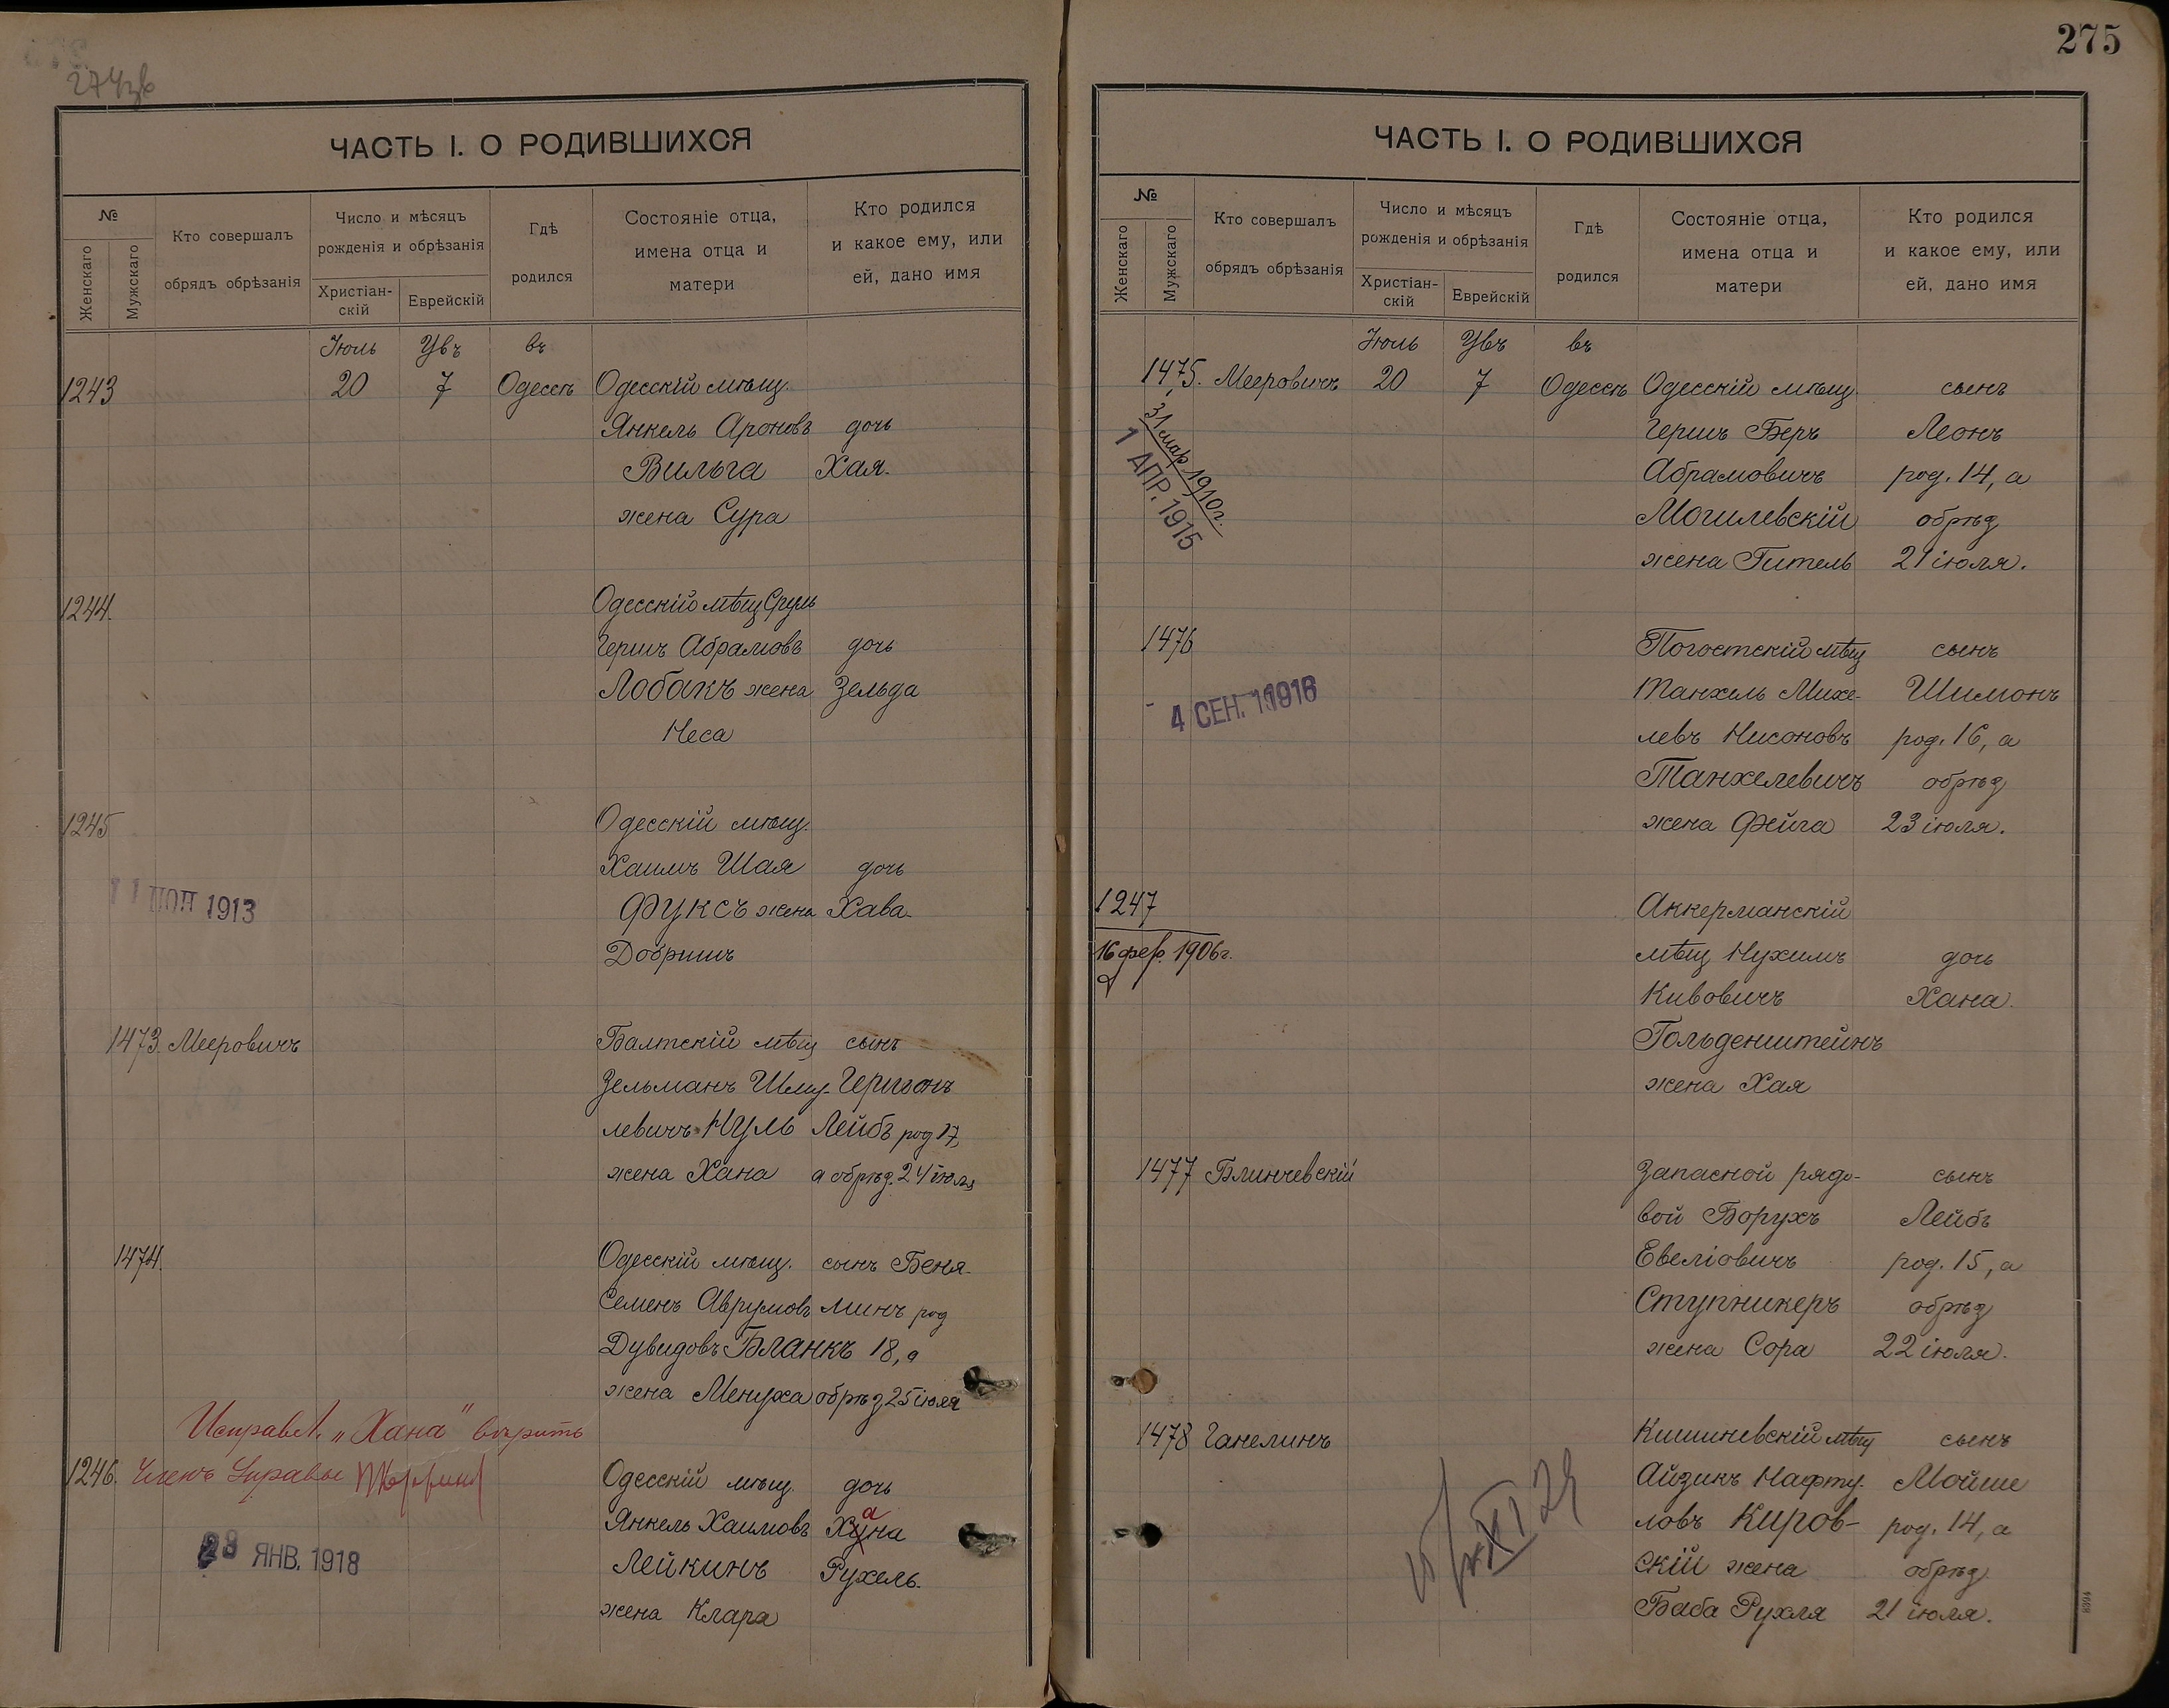 274
ЧАСТЬ I. О РОДИВШИХСЯ
№
Женскаго
Мужскаго
Кто совершалъ
обрядъ обрѣзанія
Число и мѣсяцъ
рожденія и обрѣзанія
Христіан-
скій
Еврейскій
Гдѣ
родился
Состояніе отца,
имена отца и
матери
Кто родился
и какое ему, или
ей, дано имя
Іюль Увъ въ
1243 20 7 Одессѣ Одесскій мѣщ.
Янкель Ароновъ дочь
Вильга Хая.
жена Сура
1244. Одесскій мѣщ Сруль
Гершъ Абрамовъ дочь
Лобакъ жена Зельда
Неса
1245 Одесскій мѣщ.
Хаимъ Шая дочь
Фуксъ жена Хава
1913
Добришъ
1473. Мееровичъ Балтскій мѣщ сынъ
Зельманъ Шму- Гершонъ
левичъ Нуль Лейбъ род 17,
жена Хана а обрѣз. 24 іюля
1474. Одесскій мѣщ. сынъ Беня-
Семенъ Аврумовъ минъ род
Дувидовъ Бланкъ 18, а
жена Менуха обрѣз 25 іюля
Исправл. „Хана" вѣрить
1246. Членъ Управы
Одесскій мѣщ. дочь
Янкель Хаимовъ Хуна
а
28 ЯНВ. 1918
Лейкинъ Рухель.
жена Клара
275
ЧАСТЬ I. О РОДИВШИХСЯ
№
Женскаго
Мужскаго
Кто совершалъ
обрядъ обрѣзанія
Число и мѣсяцъ
рожденія и обрѣзанія
Христіан-
скій
Еврейскій
Гдѣ
родился
Состояніе отца,
имена отца и
матери
Кто родился
и какое ему, или
ей, дано имя
Іюль Увъ въ
1475. Мееровичъ 20 7 Одессѣ Одесскій мѣщ. сынъ
31 мар 1910г.
1 АПР. 1915
Гершъ Беръ Леонъ
Абрамовичъ род. 14, а
Могилевскій обрѣз
жена Гитель 21 іюля.
1476 Погостскій мѣщ сынъ
4 СЕН. 1916
Танхель Михе- Шимонъ
левъ Нисоновъ род. 16, а
Танхелевичъ обрѣз
жена Фейга 23 іюля.
1247 Аккерманскій
16 фев. 1906г. мѣщ Нухимъ дочь
Кивовичъ Хана.
Гольденштейнъ
жена Хая
1477 Блинчевскій Запасной рядо- сынъ
вой Борухъ Лейбъ
Евеліовичъ род. 15, а
Ступникеръ обрѣз
жена Сора 22 іюля.
1478 Ганелинъ Кишиневскій мѣщ сынъ
Айзикъ Нафту- Мойше
ловъ Киров- род. 14, а
скій жена обрѣз
Баба Рухля 21 іюля.